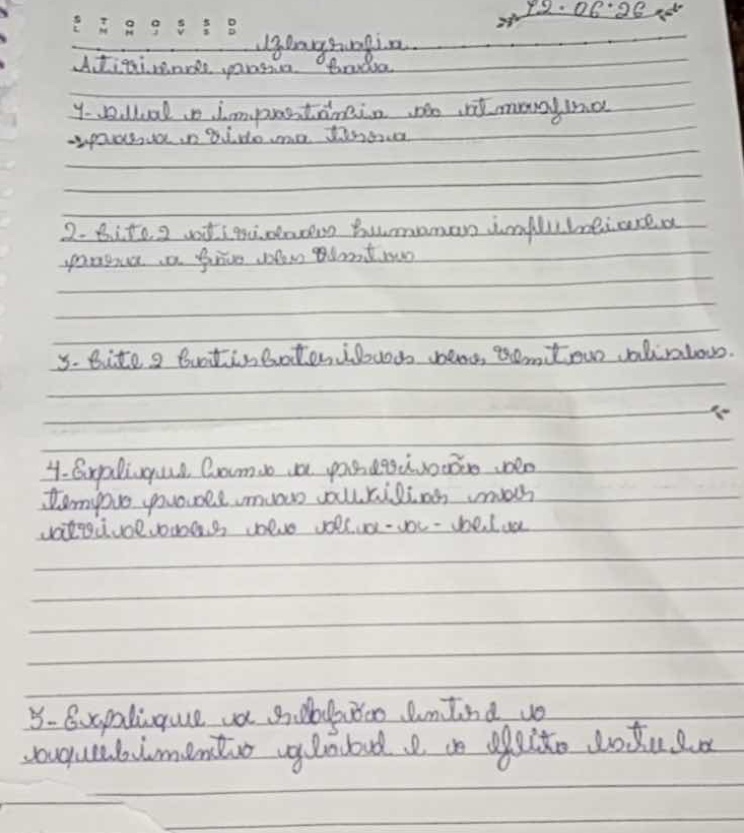 S T Q Q S S D
L M M J V S D
12.06.26
Geografia
Atividade para Casa
1- Qual a importância da atmosfera
para a vida na terra
2- Cite 2 atividades humanas
para a dos ventos
3- Cite 2 dos ventos alísios.
4- Explique Como a previsão do
tempo pode nos auxiliar nas
atividades do dia-a-dia
5- Explique a relação entre o
aquecimento global e o efeito estufa